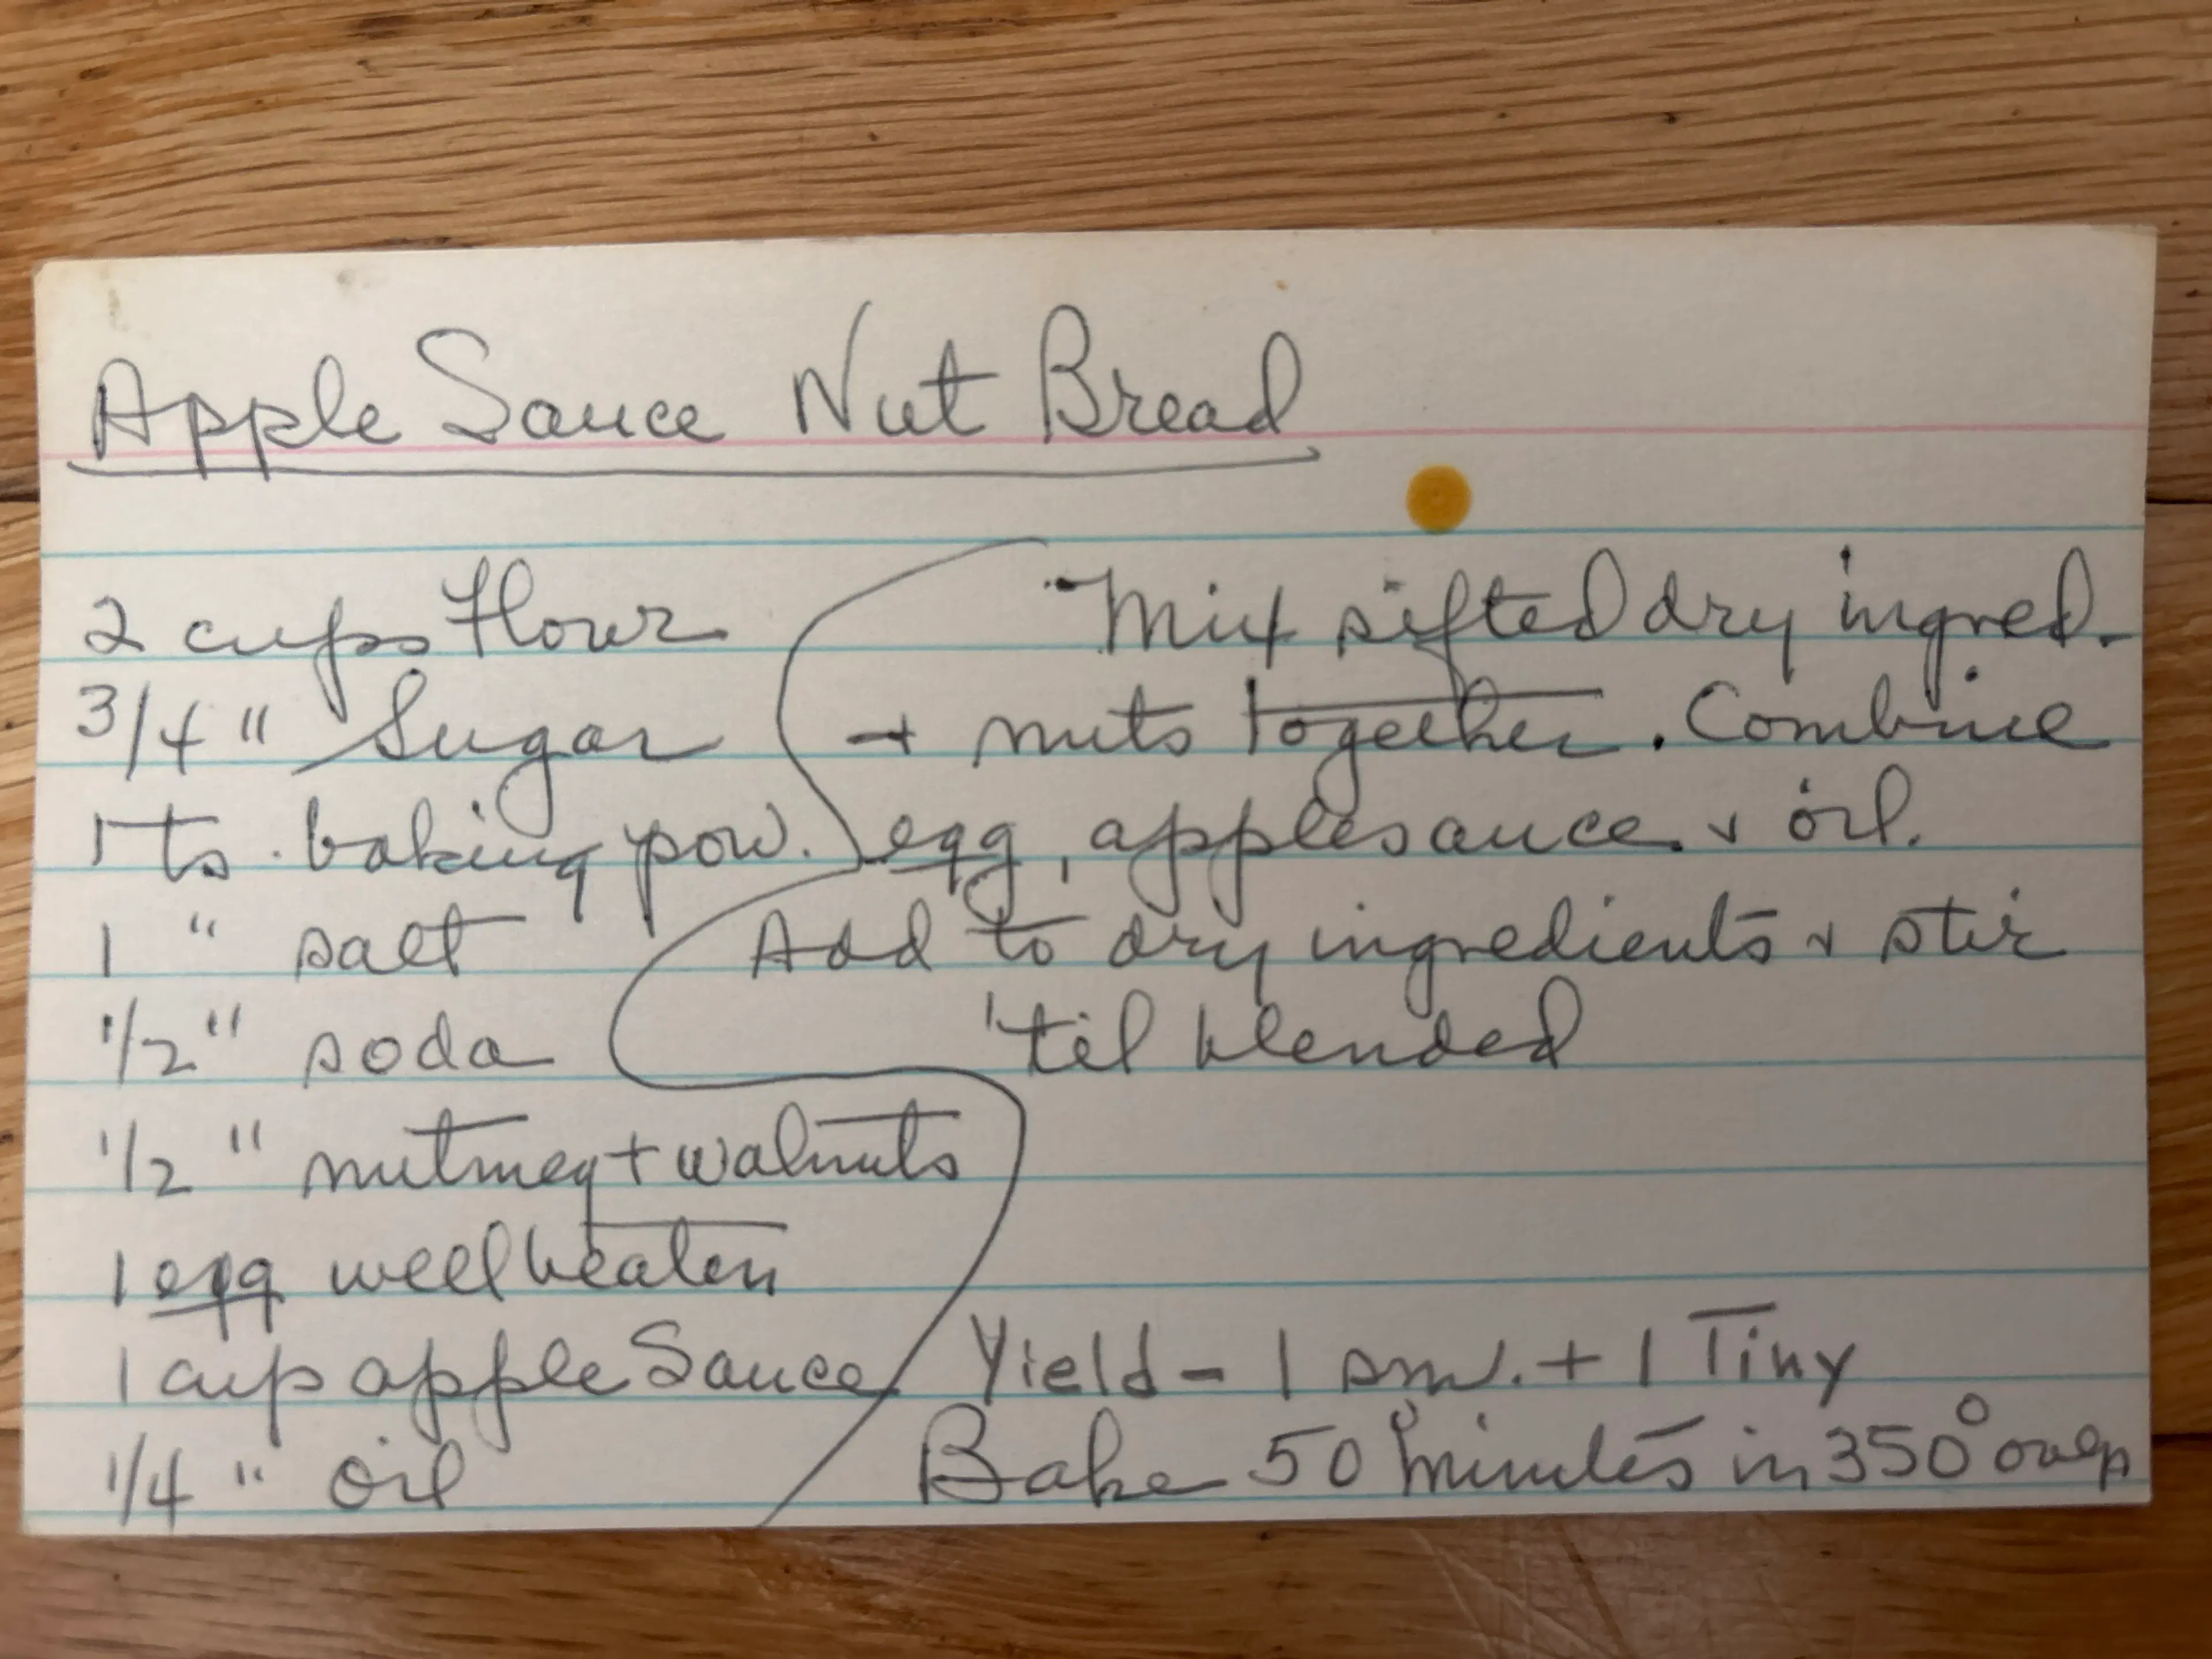 Apple Sauce Nut Bread
2 cups Flour
3/4 " Sugar
1 ts. baking pow.
1 " salt
1/2 " soda
1/2 " nutmeg + walnuts
1 egg well beaten
1 cup apple Sauce
1/4 " oil
Mix sifted dry ingred.
+ nuts together. Combine
egg, applesauce & oil.
Add to dry ingredients & stir
'til blended
Yield - 1 sm. + 1 Tiny
Bake 50 minutes in 350° oven